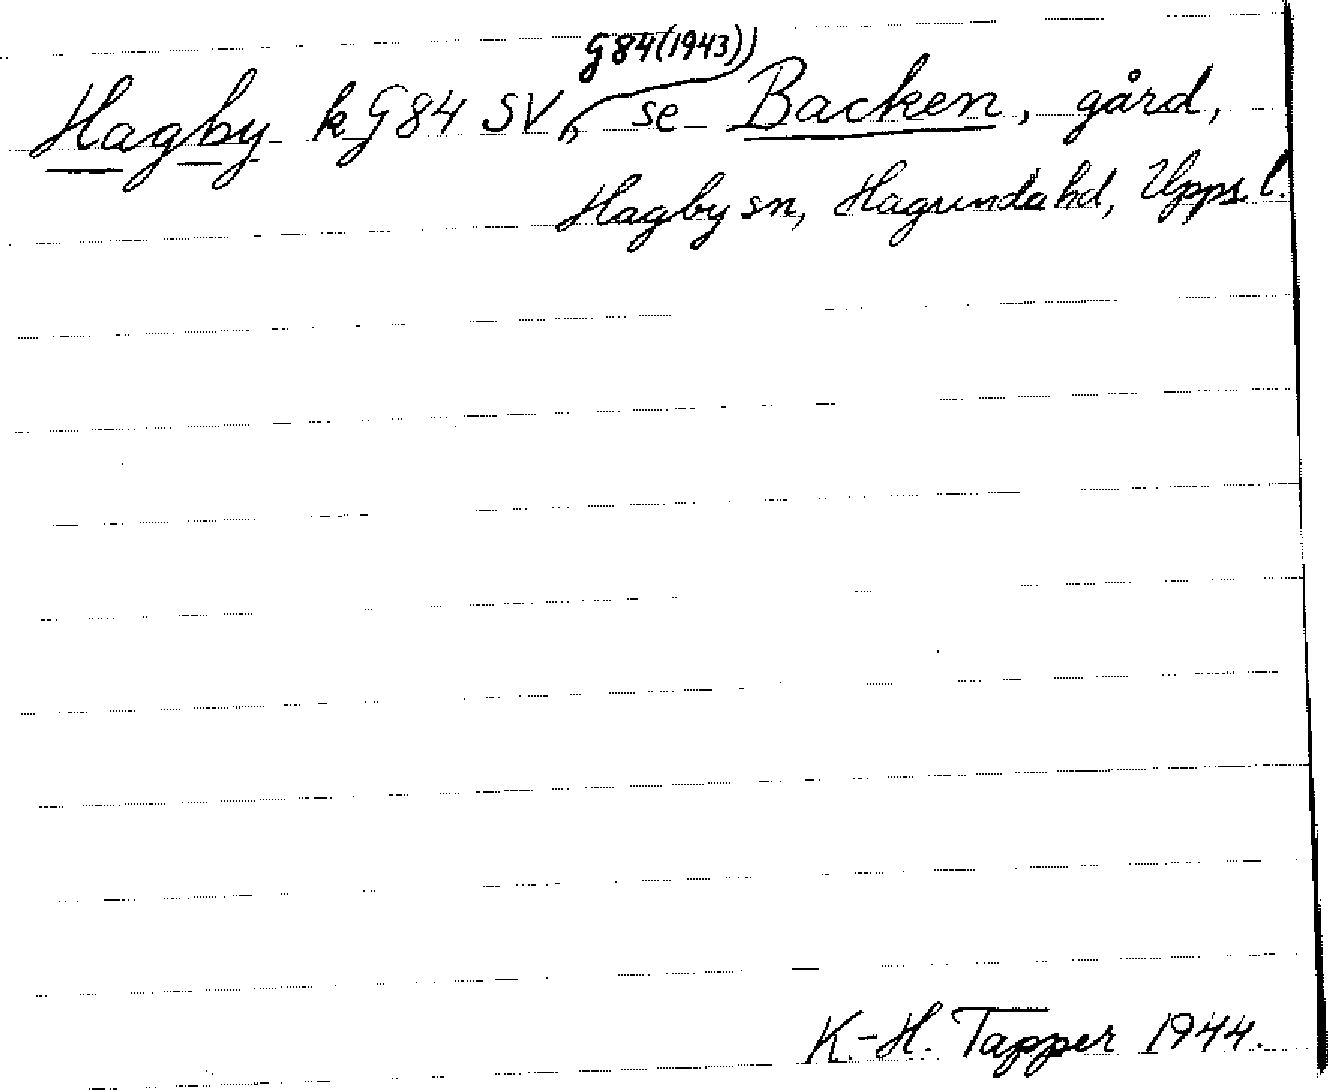 G84(1943))
Hagby k G84 SV, se Backen, gård,
Hagby sn, Hagunda hd, Upps. l.
K.-H. Tapper 1944.